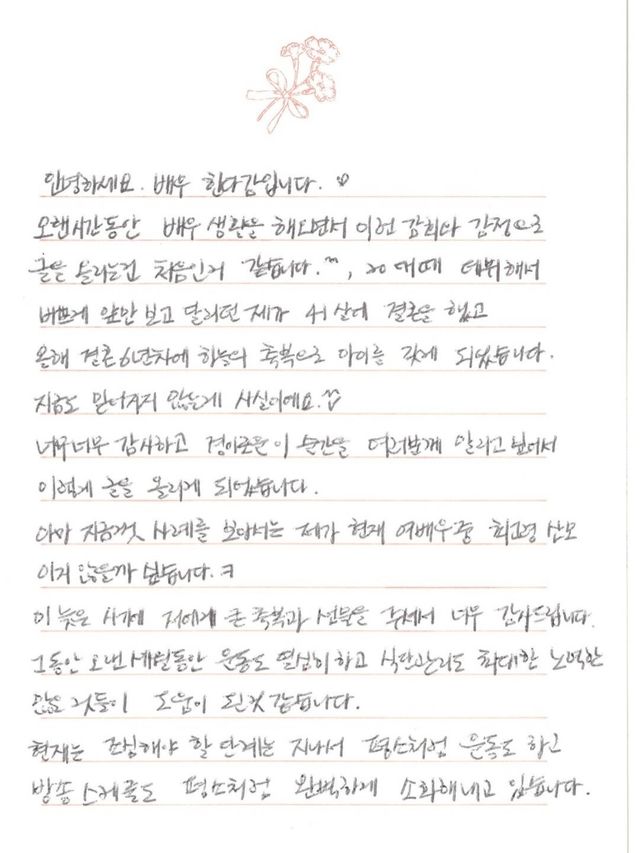 안녕하세요. 배우 한다감입니다.
오랜시간동안 배우 생활을 해오면서 이런 감회와 감정으로
글을 올리는건 처음인거 같습니다.^^, 20대때 데뷔해서
바쁘게 앞만 보고 달리던 제가 41살에 결혼을 했고
올해 결혼 6년차에 하늘의 축복으로 아이를 갖게 되었습니다.
지금도 믿어지지 않는게 사실이에요.
너무너무 감사하고 경이로운 이 순간을 여러분께 알리고 싶어서
이렇게 글을 올리게 되었습니다.
아마 지금껏 사례를 보아서는 제가 현재 여배우중 최고령 산모
이지 않을까 싶습니다.ㅋ
이 늦은 시기에 저에게 큰 축복과 선물을 주셔서 너무 감사드립니다.
그동안 오랜세월동안 운동도 열심히 하고 식단관리도 최대한 노력한
많은 것들이 도움이 된것 같습니다.
현재는 조심해야 할 단계는 지나서 평소처럼 운동도 하고
방송 스케줄도 평소처럼 완벽하게 소화해내고 있습니다.